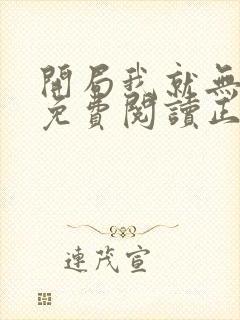 開局我就無
免費閱讀正
連茂宣